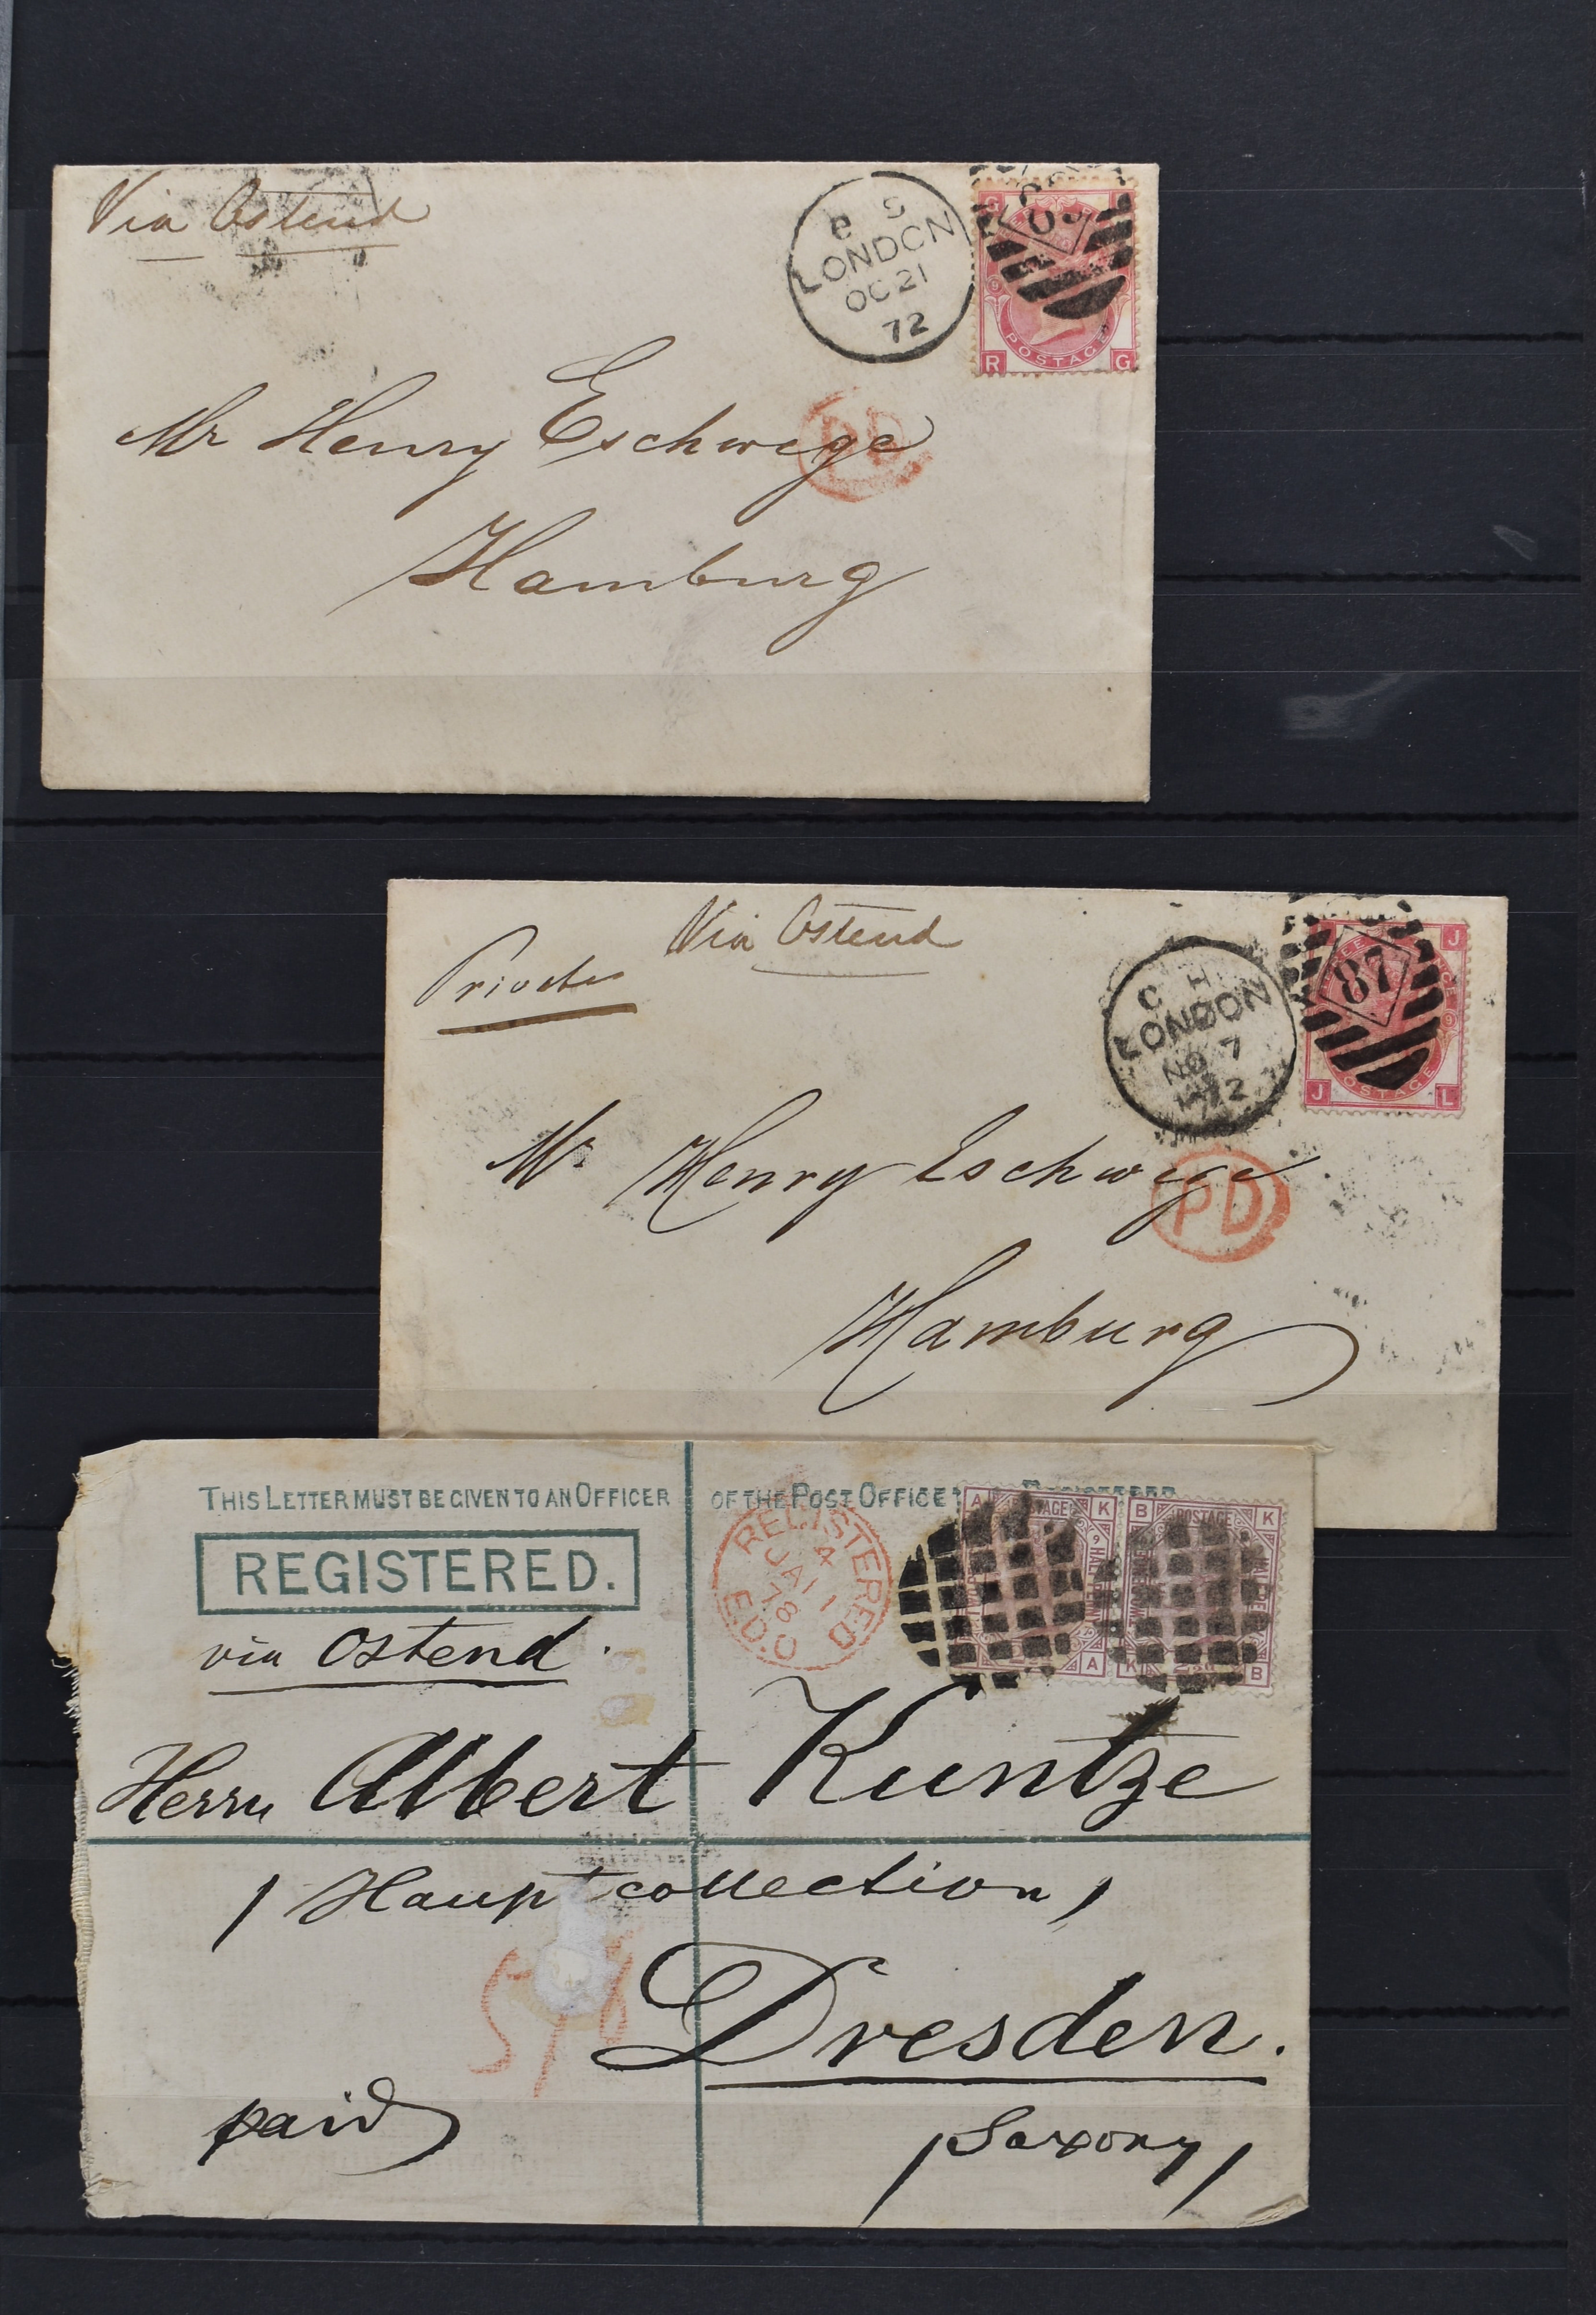 Via Ostend
e S
LONDON
OC 21
72
G
9
POSTAGE
R G
PD
Mr Henry Eschwege
Hamburg
Via Ostend
Private
C H
LONDON
NO 7
72
87
J
9
POSTAGE
J L
Mr Henry Eschwege
PD
Hamburg
THIS LETTER MUST BE GIVEN TO AN OFFICER OF THE POST OFFICE
REGISTERED.
REGISTERED
4
JA 11
78
A POSTAGE K
9
HALFPENNY
A
B POSTAGE K
K B
via Ostend.
Herrn Albert Kuntze
/ Hauptcollection /
Dresden.
paid
/ Saxony /